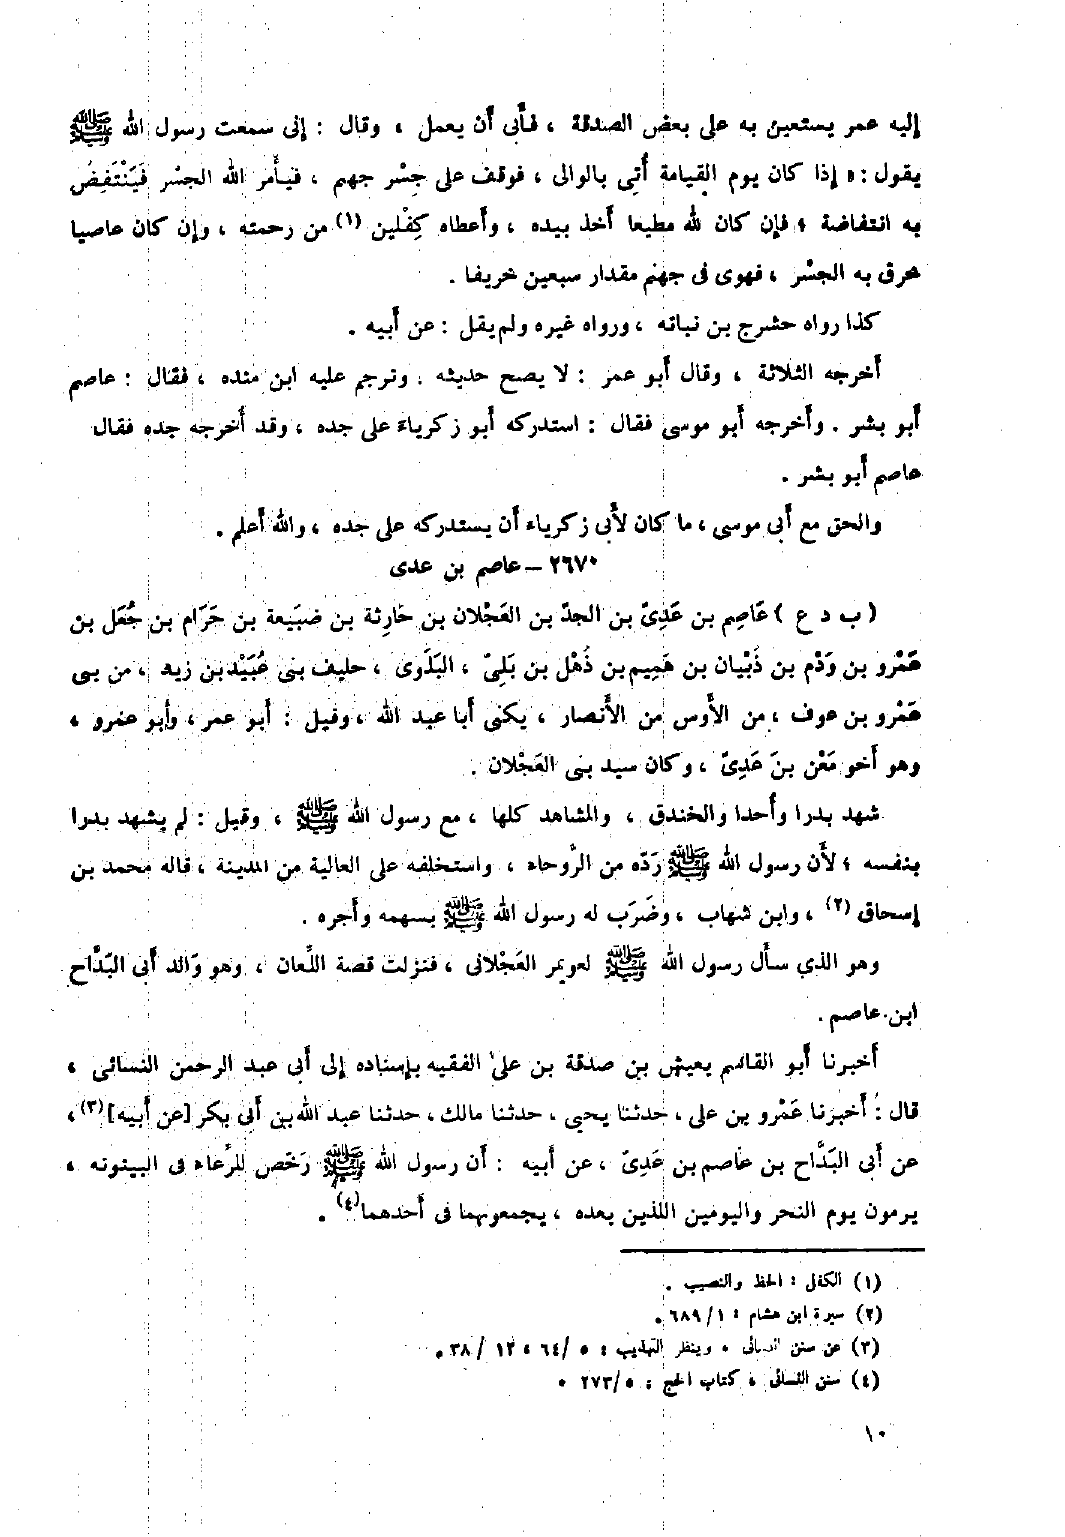 إليه عمر يستعين به على بعض الصدقة ، فأبى أن يعمل ، وقال : إنى سمعت رسول الله ﷺ
يقول : « إذا كان يوم القيامة أُتِى بالوالى ، فوقف على جِسْر جهم ، فيأمر الله الجسْر فَيَنْتَفِضُ
به انتفاضة ؛ فإن كان لله مطيعا أخذ بيده ، وأعطاه كِفْلين (١) من رحمته ، وإن كان عاصيا
خرق به الجسْر ، فهوى فى جهنم مقدار سبعين خريفا .
كذا رواه حشرج بن نباته ، ورواه غيره ولم يقل : عن أبيه .
أخرجه الثلاثة ، وقال أبو عمر : لا يصح حديثه . وترجم عليه ابن منده ، فقال : عاصم
أبو بشر . وأخرجه أبو موسى فقال : استدركه أبو زكرياءَ على جده ، وقد أخرجه جده فقال
عاصم أبو بشر .
والحق مع أبى موسى ، ما كان لأبى زكرياء أن يستدركه على جده ، والله أعلم .
٢٦٧٠ – عاصم بن عدى
( ب د ع ) عَاصِم بن عَدِىّ بن الجدّ بن العَجْلان بن حَارِثة بن ضبَيعة بن حَرَام بن جُعَل بن
عَمْرو بن وَدْم بن ذُبْيان بن هَمِيم بن ذُهْل بن بَلِىّ ، البَلَوى ، حليف بنى عُبَيْد بن زيد ، من بنى
عَمْرو بن عوف ، من الأوس من الأنصار ، يكنى أبا عبد الله ، وقيل : أبو عمر ، وأبو عمرو ،
وهو أخو مَعْن بنَ عَدِىّ ، وكان سيد بنى العَجْلان .
شهد بدرا وأحدا والخندق ، والمشاهد كلها ، مع رسول الله ﷺ ، وقيل : لم يشهد بدرا
بنفسه ؛ لأن رسول الله ﷺ رَدّه من الرَّوحاء ، واستخلفه على العالية من المدينة ، قاله محمد بن
إسحاق (٢) ، وابن شهاب ، وضَرَب له رسول الله ﷺ بسهمه وأجره .
وهو الذي سأل رسول الله ﷺ لعويمر العَجْلانى ، فنزلت قصة اللِّعان ، وهو وَالد أبى البَدَّاح
ابن عاصم .
أخبرنا أبو القاسم يعيش بن صدقة بن على الفقيه بإسناده إلى أبى عبد الرحمن النسائى ،
قال : أخبرنا عَمْرو بن على ، حدثنا يحيى ، حدثنا مالك ، حدثنا عبد الله بن أبى بكر [عن أبيه] (٣) ،
عن أبى البَدَّاح بن عاصم بن عَدِىّ ، عن أبيه : أن رسول الله ﷺ رَخّص للرِّعاء فى البيتوتة ،
يرمون يوم النحر واليومين اللذين بعده ، يجمعونهما فى أحدهما (٤) .
(١) الكفل : الحظ والنصيب .
(٢) سيرة ابن هشام : ١/ ٦٨٩ .
(٣) عن سنن النسائى ، وينظر التهذيب : ٥ /٦٤ ، ١٢ / ٣٨ .
(٤) سنن النسائى ، كتاب الحج : ٥/ ٢٧٣ .
١٠